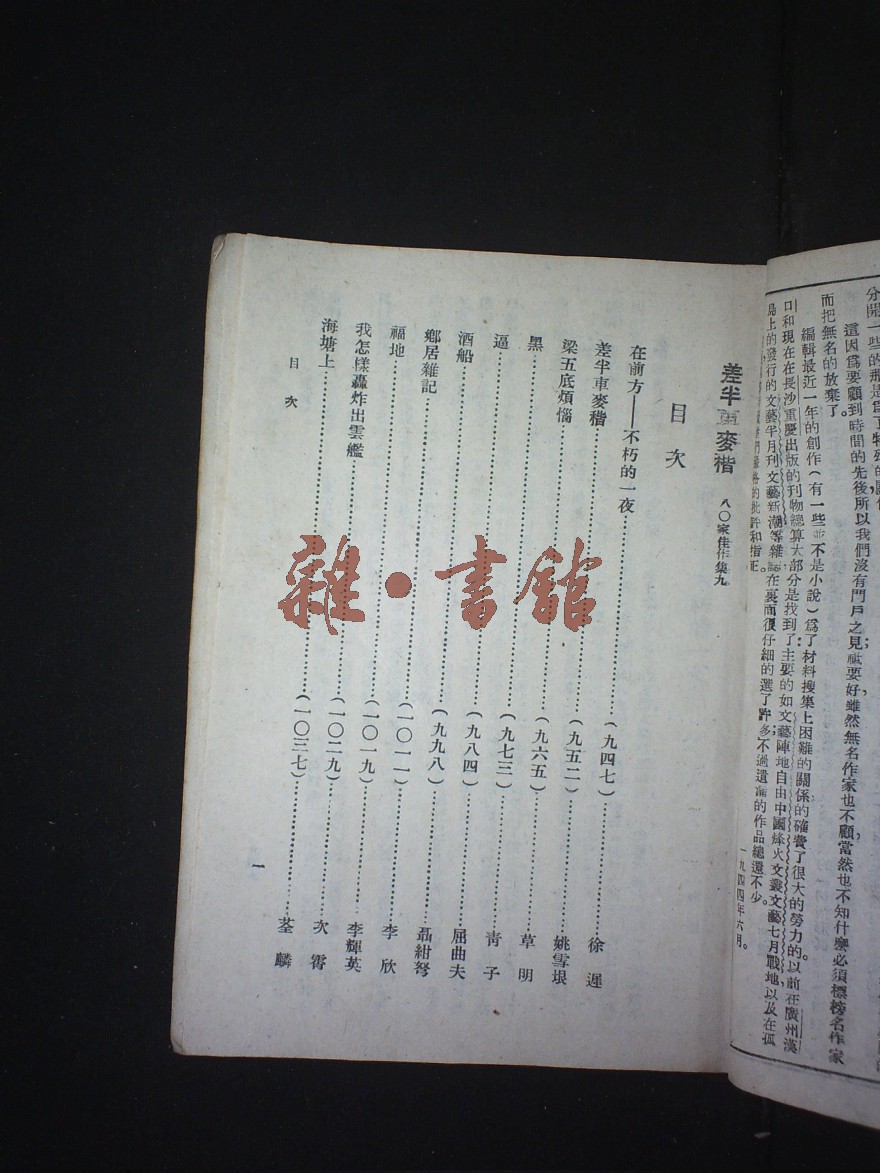 這因爲要顧到時間的先後所以我們沒有門戶之見祗要好,雖然無名作家也不顧,當然也不知什麽必須標榜名作家
而把無名的放棄了。
編輯最近一年的創作(有一些並不是小說)爲了材料搜集上困難的關係的確費了很大的勞力的以前在廣州漢
口和現在在長沙重慶出版的刊物總算大部分是找到了;主要的如文藝陣地自由中國烽火文叢文藝七月戰地以及在孤
島上的發行的文藝半月刊文藝新潮等雜誌在裏面很仔細的選了許多不過遺漏的作品總還不少。
的批評和指正。
一九四四年六月。
差半車麥稭 八〇家佳作集九
目次
在前方——不朽的一夜(九四七)徐遲
差半車麥稭(九五二)姚雪垠
梁五底煩惱(九六五)草明
黑(九七三)青子
逼(九八四)屈曲夫
酒船(九九八)聶紺弩
鄉居雜記(一〇一一)李欣
福地(一〇一九)李輝英
我怎樣轟炸出雲艦(一〇二九)次霄
海塘上(一〇三七)荃麟
目次
一
雜·書館